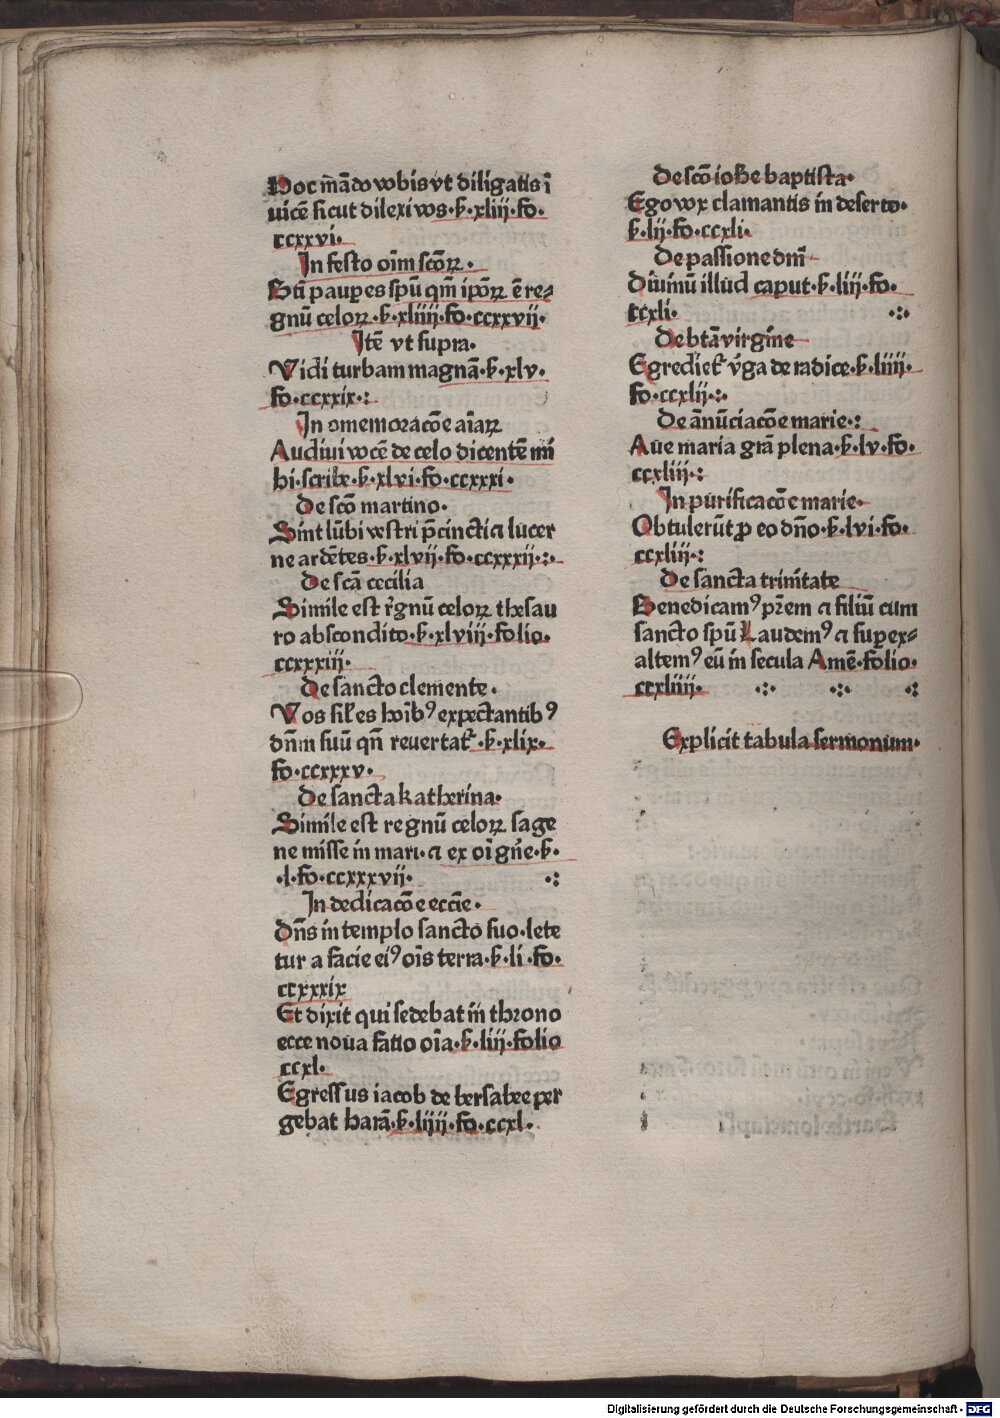 Hoc mādo vobis vt diligatis ī
uicē sicut dilexi vos·ẜ·xliij·fo·
ccxxvi·
In festo oīm scōꝝ·
Bti pauꝑes spū qm̄ ip̄oꝝ ē re⸗
gnū celoꝝ·ẜ·xliiij·fo·ccxxvij·
Itē vt supra·
Vidi turbam magnā·ẜ·xlv·
fo·ccxxix·:
In ꝯmemoracōe aīaꝝ
Audiui vocē de celo dicentē mi
hi·scribe·ẜ·xlvi·fo·ccxxxi·
De scō martino·
Sint lūbi vestri p̄cincti ⁊ lucer
ne ardētes·ẜ·xlvij·fo·ccxxxij·:·
De scā cecilia
Simile est r̄gnū celoꝝ thesau
ro abscondito·ẜ·xlviij·folio·
ccxxxiij·
De sancto clemente·
Vos sil̄es hoīb⁹ expectantib⁹
dn̄m suū qn̄ reuertat᷑·ẜ·xlix·
fo·ccxxxv·
De sancta katherina·
Simile est regnū celoꝝ sage
ne misse in mari·⁊ ex oī gn̄e·ẜ·
·l·fo·ccxxxvij· ·:
In dedicacōe eccīe·
Dn̄s in templo sancto suo·lete
tur a facie ei⁹ oīs terra·ẜ·li·fo·
ccxxxix
Et dixit qui sedebat in throno
ecce noua facio oīa·ẜ·liij·folio
ccxl·
Egressus iacob de bersabee per
gebat harā·ẜ·liiij·fo·ccxl·
De scō ioh̄e baptista·
Ego vox clamantis in deserto·
ẜ·lij·fo·ccxli·
De passione dn̄i
Diuinū illud caput·ẜ·liij·fo·
ccxli· ·:·
De btā virgine
Egrediet᷑ v̄ga de radice·ẜ·liiij·
fo·ccxlij·:·
De ānūciacōe marie·:
Aue maria grā plena·ẜ·lv·fo·
ccxliij·:
In purificacōe marie·
Obtulerūt ꝓ eo dn̄o·ẜ·lvi·fo·
ccxliij·:
De sancta trinitate
Benedicam⁹ pr̄em ⁊ filiū cum
sancto spū Laudem⁹ ⁊ suꝑex⸗
altem⁹ eū in secula Amē·folio·
ccxliiij· ·:· ·:· ·:
Explicit tabula sermonum·
Digitalisierung gefördert durch die Deutsche Forschungsgemeinschaft · DFG